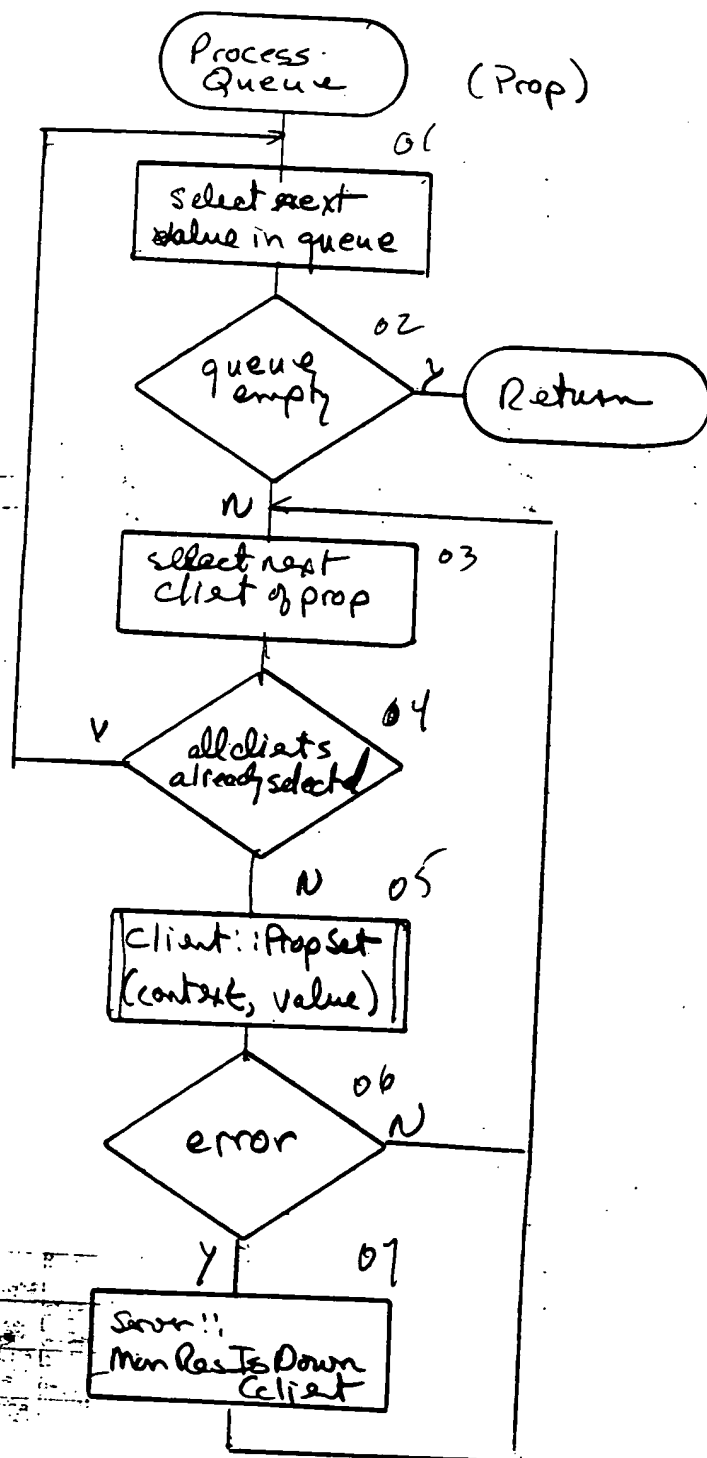 Process
Queue
(Prop)
01
select next
value in queue
02
queue
empty
Y
Return
N
select next
03
client of prop
04
Y
all clients
already selected
N
05
Client::PropSet
(context, value)
06
error
N
Y
07
Server::
Mon Res Is Down
(client